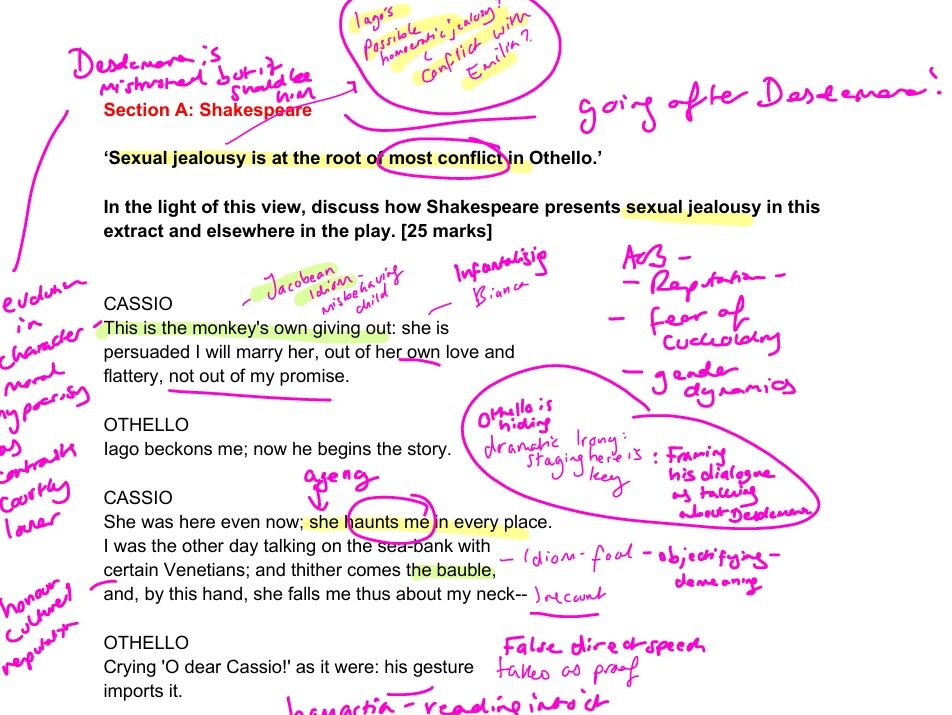 Iago's
Possible
homoerotic jealousy?
Conflict with
Emilia?
Desdemona is
mistrusted but it
should be
him
going after Desdemona!
Section A: Shakespeare
‘Sexual jealousy is at the root of most conflict in Othello.’
In the light of this view, discuss how Shakespeare presents sexual jealousy in this
extract and elsewhere in the play. [25 marks]
Jacobean
Idiom -
misbehaving
child
Infantalisig
Bianca
AO3 -
- Reputation -
- fear of
cuckoldry
- gender
dynamics
evidence
in
character
moral
hypocrisy
as
contrasts
courtly
lover
CASSIO
This is the monkey's own giving out: she is
persuaded I will marry her, out of her own love and
flattery, not out of my promise.
OTHELLO
Iago beckons me; now he begins the story.
Othello is
hiding
dramatic Irony:
staging here is
key
: Framing
his dialogue
as talking
about Desdemona
CASSIO
She was here even now; she haunts me in every place.
I was the other day talking on the sea-bank with
certain Venetians; and thither comes the bauble,
and, by this hand, she falls me thus about my neck--
- Idiom - fool - objectifying -
demeaning
honour
culture
OTHELLO
Crying 'O dear Cassio!' as it were: his gesture
imports it.
False direct speech
takes as proof
hamartia - reading into it